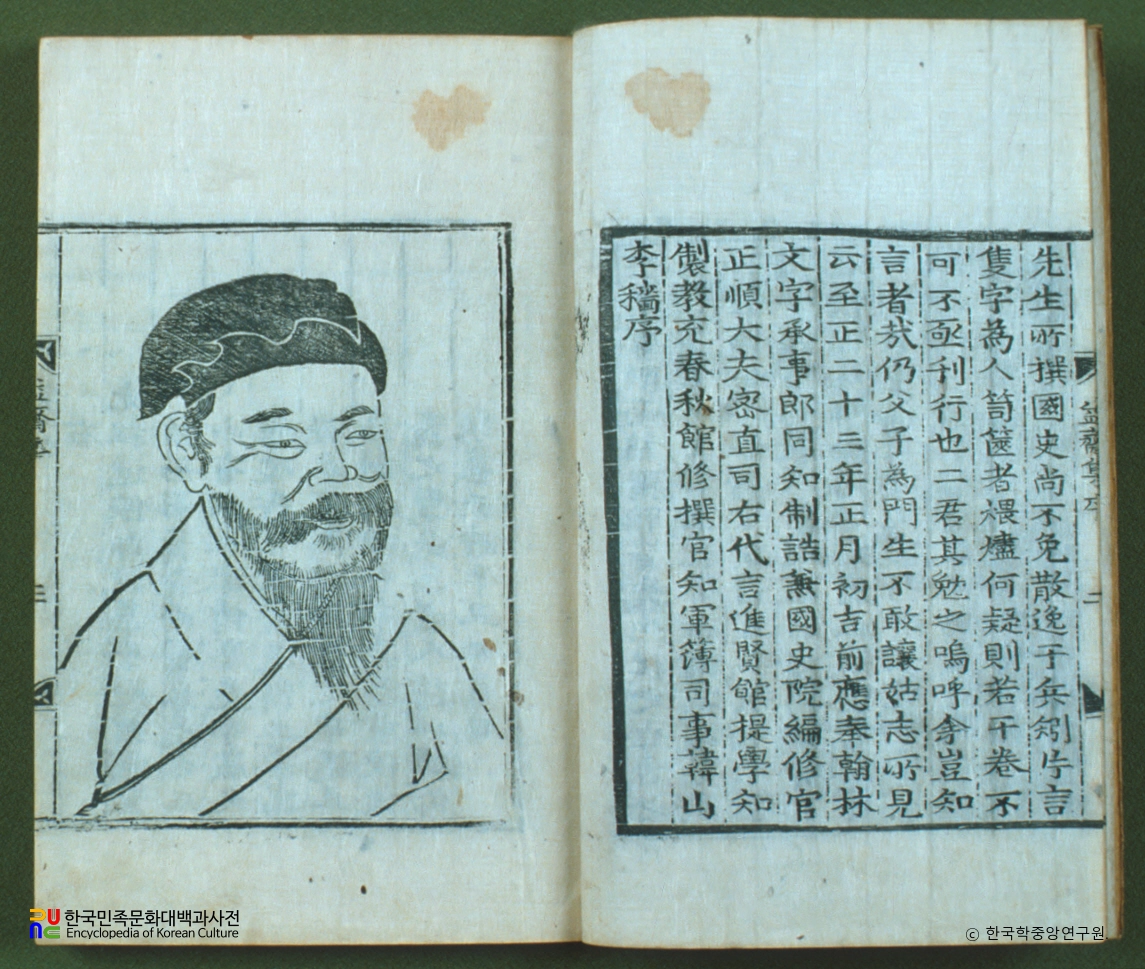 先生所撰國史尚不免散逸于兵矧片言
隻字為人笥篋者煨燼何疑則若干卷不
可不亟刊行也二君其勉之嗚呼豈知
言者哉仍父子為門生不敢讓姑志所見
云至正二十三年正月初吉前應奉翰林
文字承事郎同知制誥兼國史院編修官
正順大夫密直司右代言進賢館提學知
製教充春秋館修撰官知軍簿司事韓山
李穡序
益齋集序 二
한국민족문화대백과사전
Encyclopedia of Korean Culture
ⓒ 한국학중앙연구원